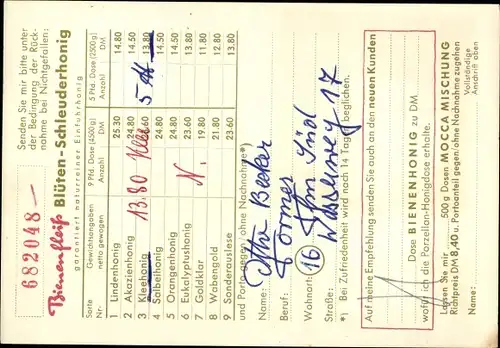 682048
Senden Sie mir bitte unter
der Bedingung der Rück-
nahme bei Nichtgefallen:
Bienenfleiß Blüten-Schleuderhonig
garantiert naturreiner Einfuhrhonig
Sorte Gewichtsangaben 9 Pfd. Dose (4500 g) 5 Pfd. Dose (2500 g)
Nr. netto gewogen Anzahl DM Anzahl DM
1 Lindenhonig 25.30 14.80
2 Akazienhonig 24.80 14.50
3 Kleehonig 13.80 Klee 5 13.80
4 Salbeihonig 24.80 14.50
5 Orangenhonig 24.80 14.50
6 Eukalyptushonig N. 23.60 13.80
7 Goldklar 19.80 11.80
8 Wabengold 21.80 12.80
9 Sonderauslese 23.60 13.80
und Porto gegen / ohne Nachnahme*)
Name: Otto Becker
Beruf: Former
Wohnort: 16
Straße: Wasserweg 17
*) Bei Zufriedenheit wird nach 14 Tagen beglichen.
Auf meine Empfehlung senden Sie auch an den neuen Kunden
Dose BIENENHONIG zu DM
wofür ich die Porzellan-Honigdose erhalte.
Lassen Sie mir 500 g Dosen MOCCA MISCHUNG
Richtpreis DM 8,40 u. Portoanteil gegen/ohne Nachnahme zugehen
Vollständige
Anschrift oben
Name: